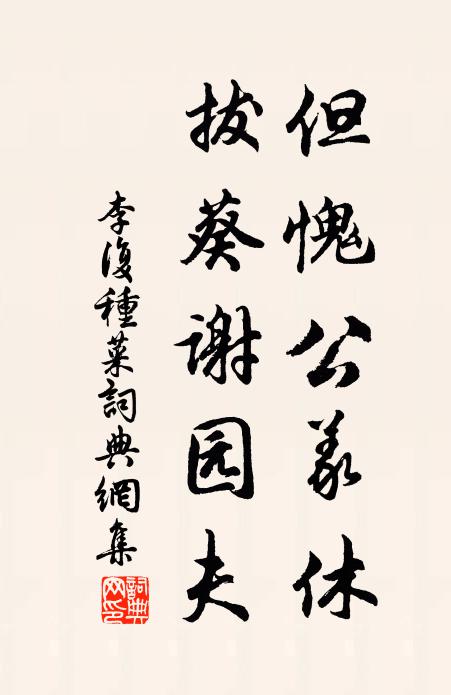 但愧公義休
拔葵谢园夫
李復種菜詞典網集
詞典网印